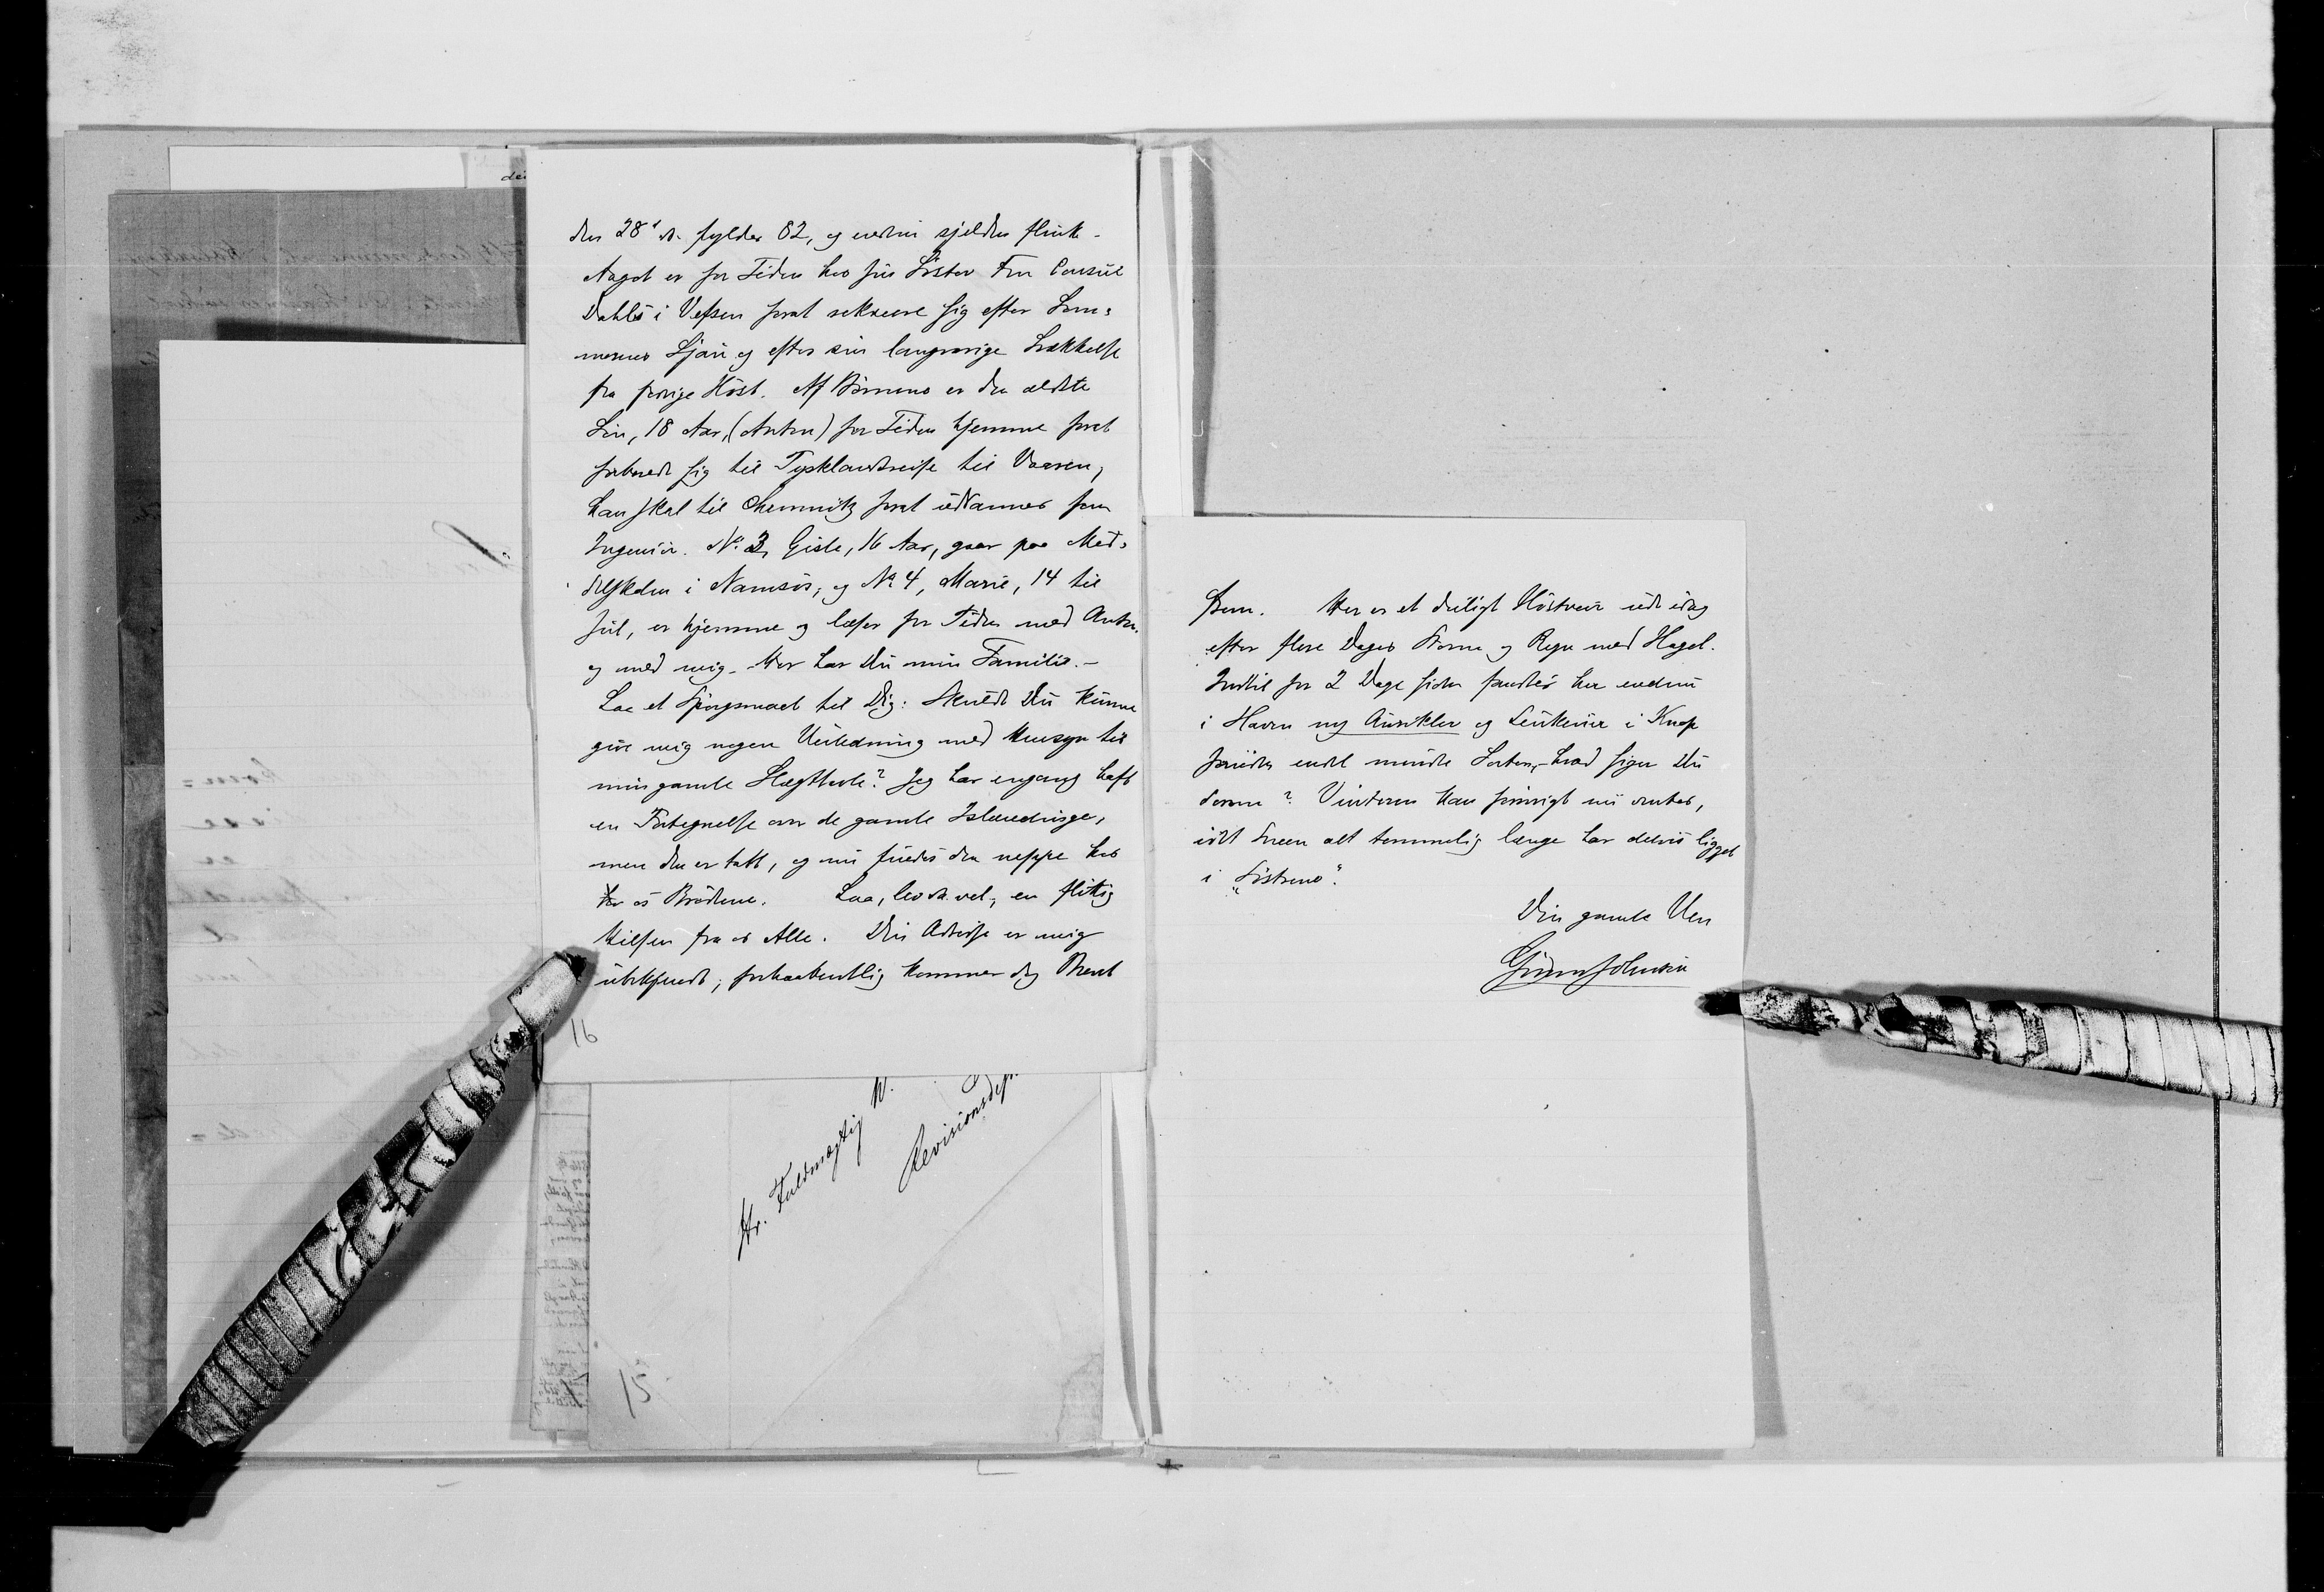 den 28de ds. fylder 82, og endnu sjelden flink.
Aagot er for Tiden hos sin Söster Fru Consul
Dahls i Vefsen forat rekreere sig efter Som-
merens Sjau og efter sin langvarige Svækkelse
fra forrige Höst. Af Börnene er den ældste
Sön, 18 Aar, (Anton) for Tiden hjemme forat
forberede sig til Tysklandsreise til Vaaren,
han skal til Chemnitz forat uddannes som
Ingeniör. No. 3, Gisle, 16 Aar, gaar paa Mid-
delskolen i Namsos, og No 4, Marie, 14 til
Jul, er hjemme og læser for Tiden med Anton
og med mig. Her har Du min Familie. -
Saa et Spörgsmaal til Dig: Skulde Du kunne
give mig nogen Veiledning med Hensyn til
min gamle Slægttavle? Jeg har engang haft
en Fortegnelse over de gamle Islændinge,
men den er tabt, og nu findes den neppe hos
os Brödrene. Saa, lev da vel, en flittig
Hilsen fra os Alle. Din Adresse er mig
ubekjendt, forhaabentlig kommer dog Brevet
16
frem. Her er et deiligt Höstveir ude idag
efter flere Dages Storm og Regn med Hagel.
Indtil for 2 Dage siden fandtes her endnu
i Haven ny Aurikler og Levkoier i Knop
foruden endel mindre Sorter, - hvad siger Du
derom? Vinteren kan forövrigt nu ventes,
idet Sneen alt temmelig længe har delvis ligget
i "Östrene".
Din gamle Ven
Hr. Fuldmægtig
Revisionsdep.
15